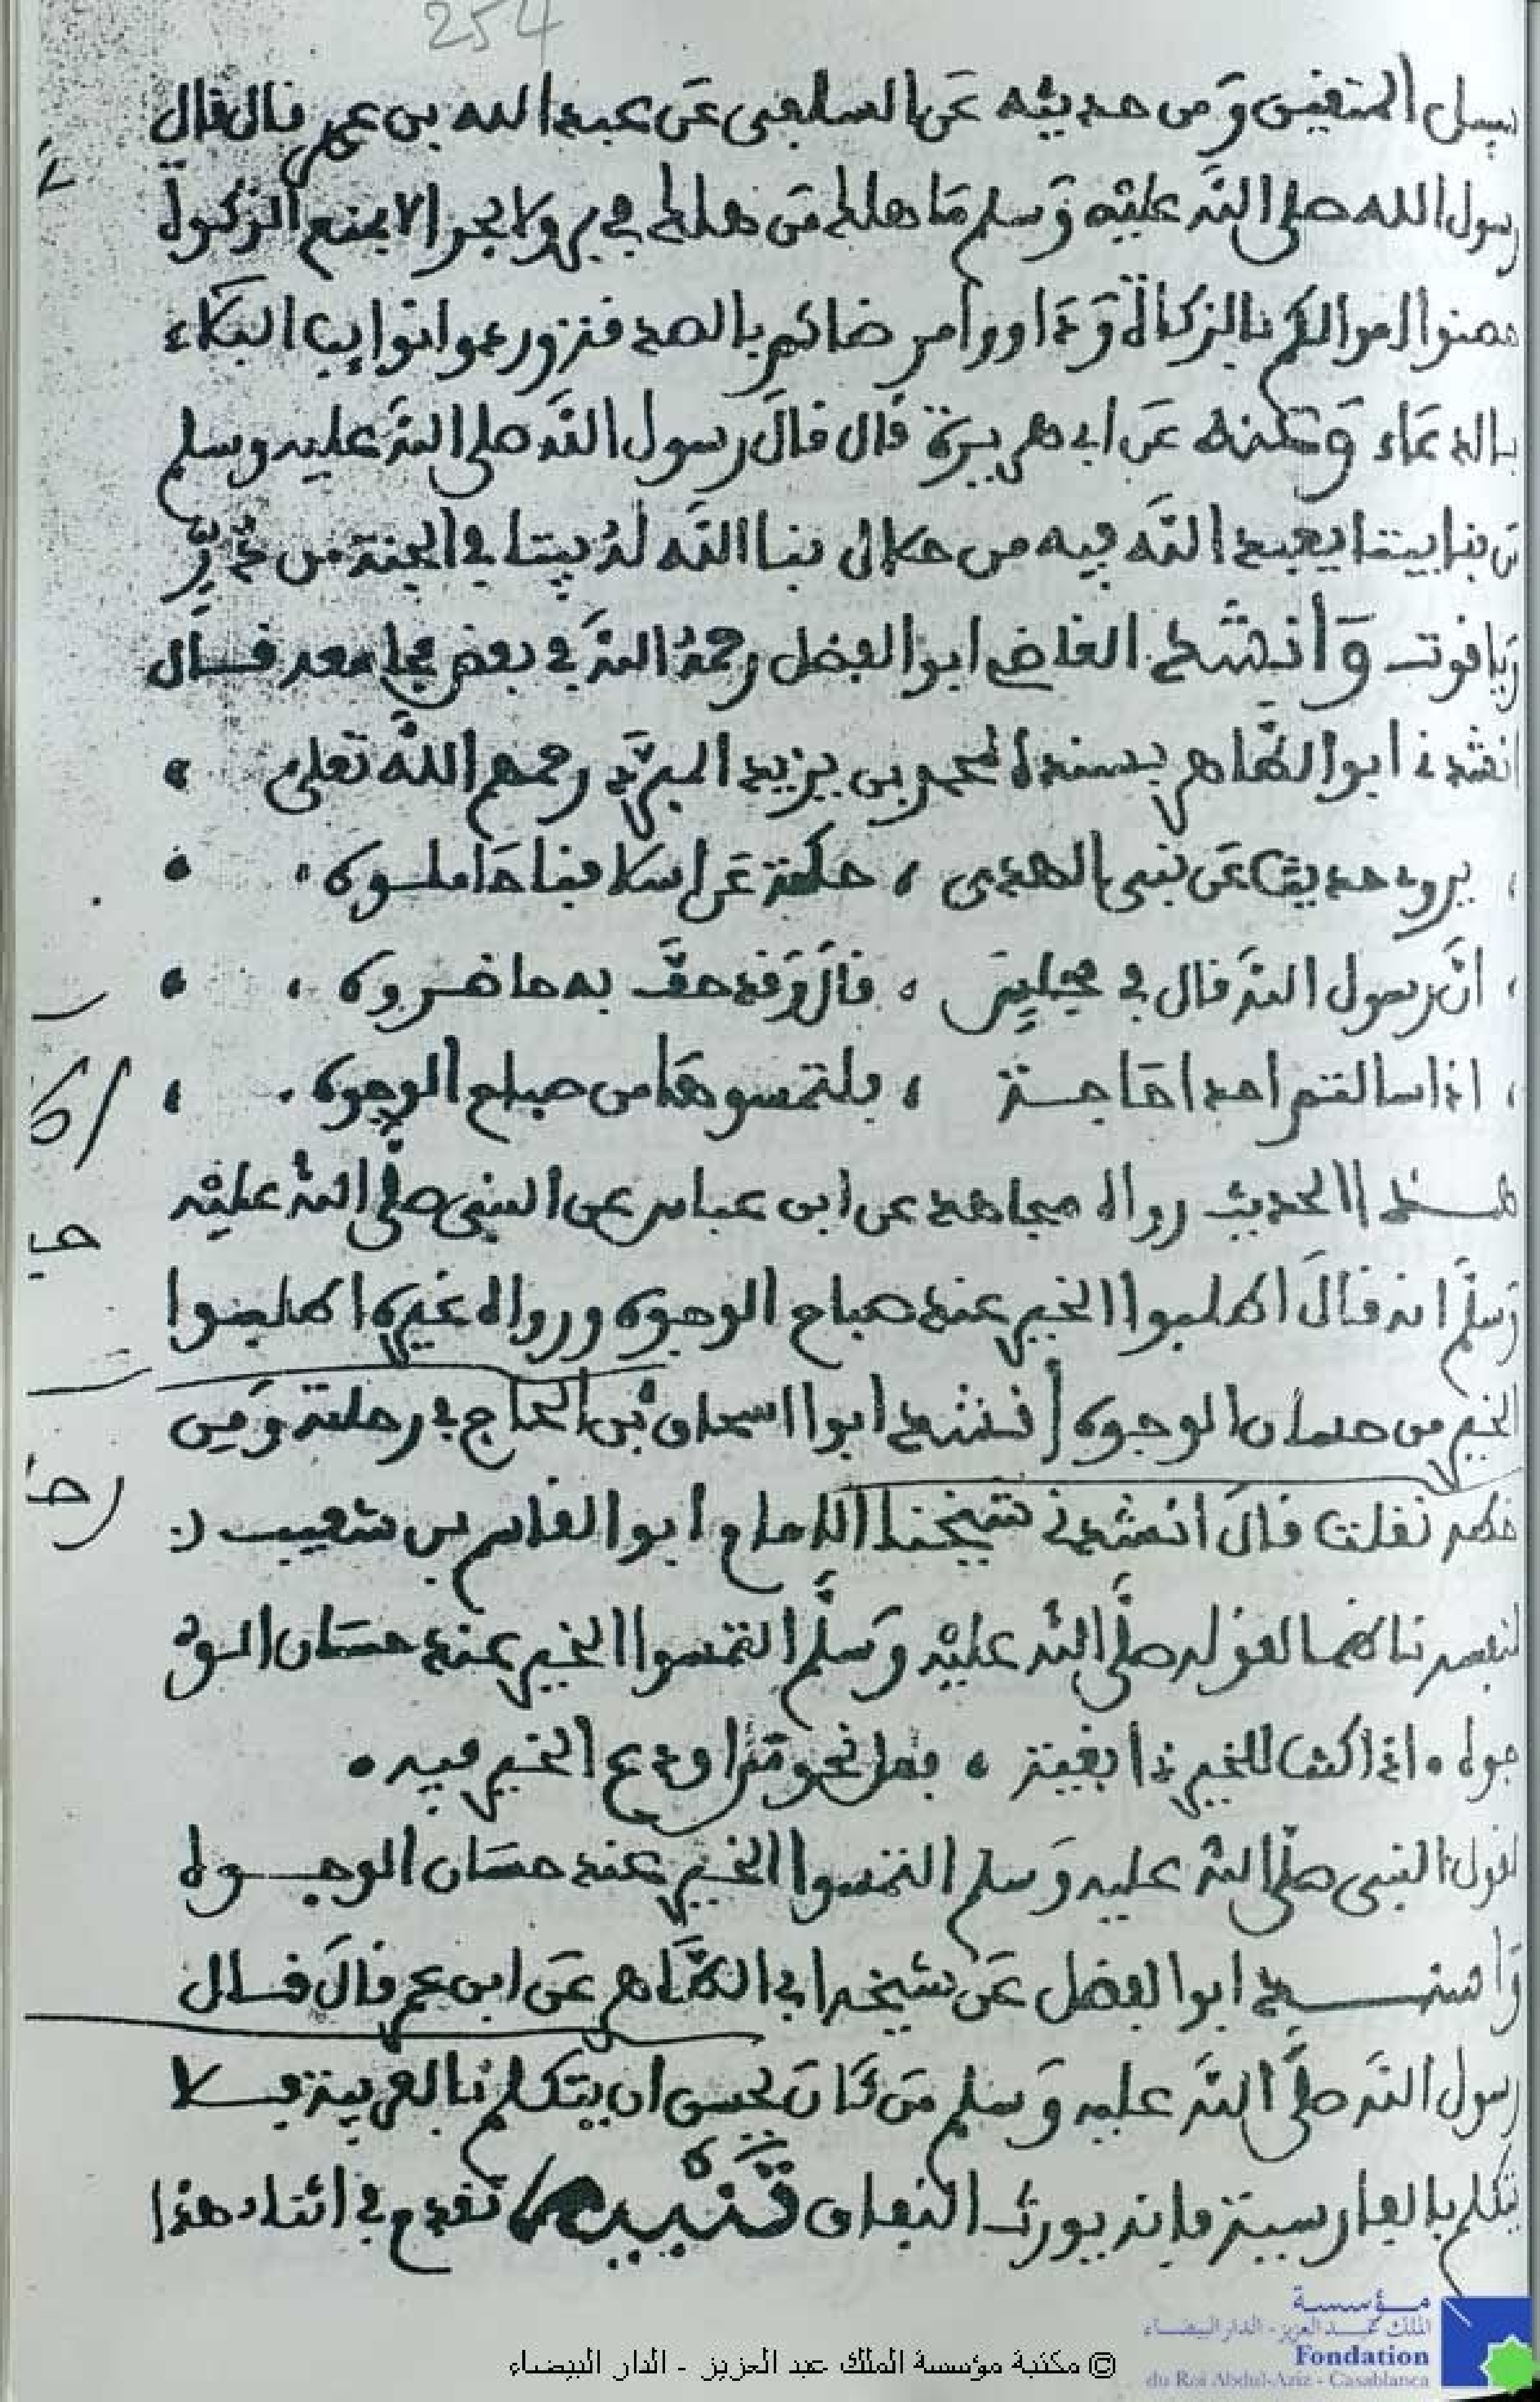 254
سبيل المتقين ومن حديثه عن السلفي عن عبد الله بن عمر قال قال
رسول الله صلى الله عليه وسلم ما هلك من هلك في بر ولا بحر الا بمنع الزكوة
حصنوا اموالكم بالزكاة وداووا مرضاكم بالصدقة وردعوا نوايب البلاء
بالدعاء وعنه عن ابي هريرة قال قال رسول الله صلى الله عليه وسلم
من بنا بيتا يعبد الله فيه من حلال بنا الله له بيتا في الجنة من در
وياقوت وانشد القاضي ابو الفضل رحمه الله في بعض مجامعه قال
انشدني ابو الطاهر بسنده لمحمد بن يزيد المبرد رحمهم الله تعلى
يروه حديثا عن نبي الهدى ، حكمة عن اسلافنا حاملوه
ان رسول الله قال في مجلس ، قال وقد حف به حاضروه
اذا سالتم احدا حاجة ، فلتمسوها من صباح الوجوه
هذا الحديث رواه مجاهد عن ابن عباس عن النبي صلى الله عليه
وسلم انه قال اطلبوا الخير عند صباح الوجوه ورواه غيره اطلبوا
الخير من حسان الوجوه انشد ابو اسحاق بن الحاج في رحلته ومن
خطه نقلت قال انشدني شيخنا الامام ابو القاسم بن شعيب
لنفسه ناظما لقوله صلى الله عليه وسلم التمسوا الخير عند حسان الو
جوه ، اذا كنت للخير ذا بغية ، فمل نحو من اودع الخير فيه
لقول النبي صلى الله عليه وسلم التمسوا الخير عند حسان الوجوه
واسند ابو الفضل عن شيخه ابي الطاهر عن ابن عمر قال قال
رسول الله صلى الله عليه وسلم من كان يحسن ان يتكلم بالعربية فلا
يتكلم بالفارسية فانه يورث النفاق تنبيه تقدم في اثناء هذا
مؤسسة
الملك عبد العزيز - الدار البيضاء
Fondation
du Roi Abdul-Aziz - Casablanca
© مكتبة مؤسسة الملك عبد العزيز - الدار البيضاء